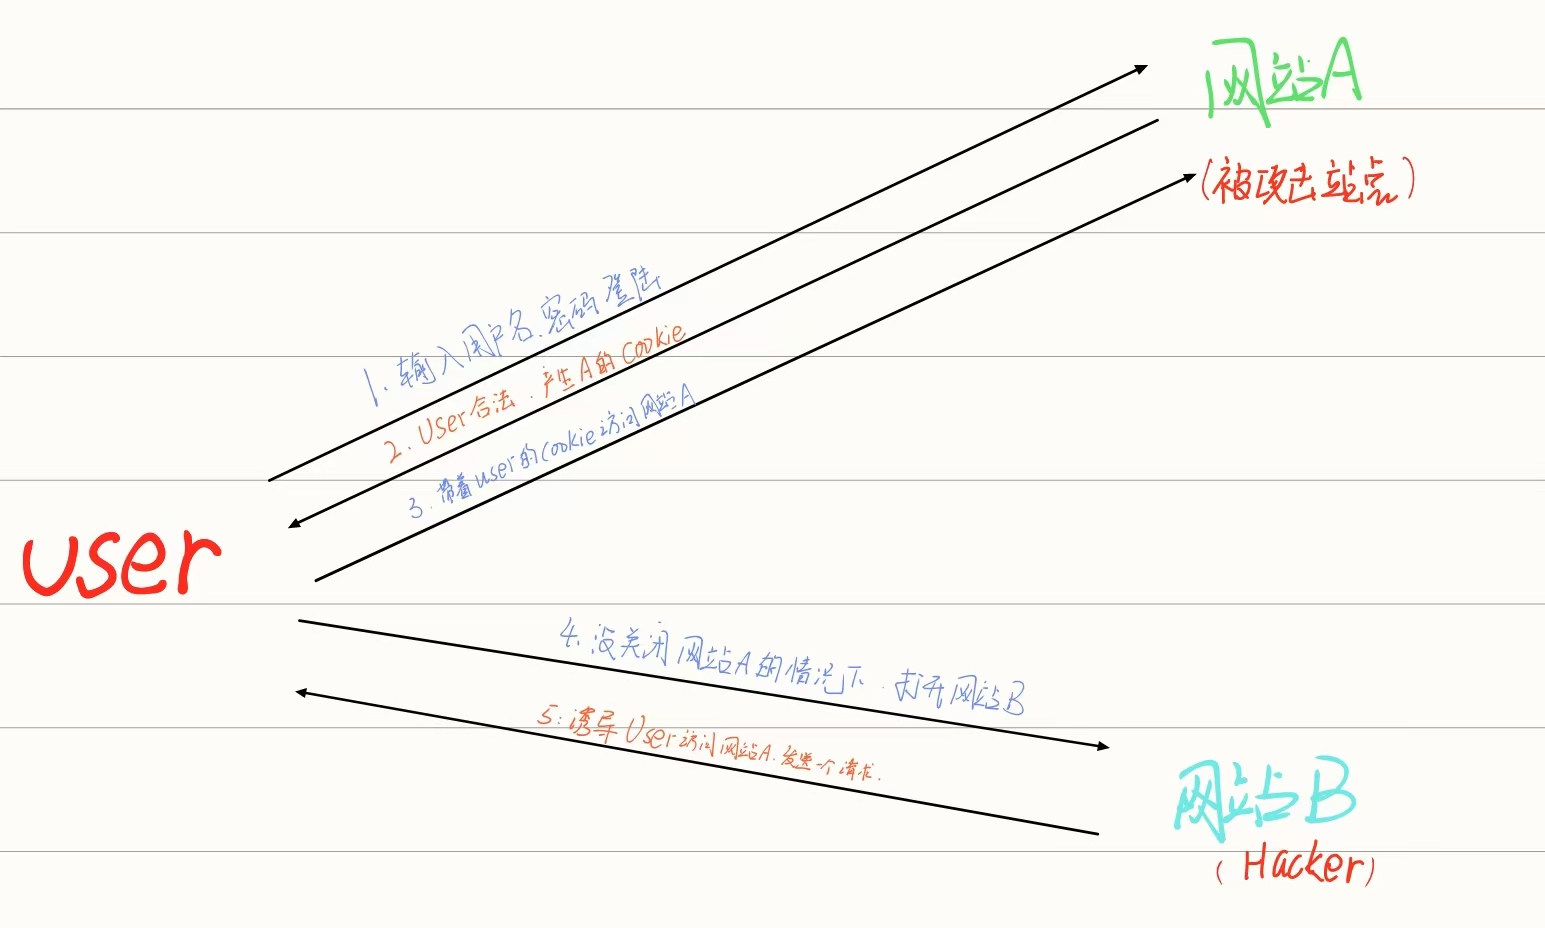 网站A
(被攻击站点)
1. 输入用户名、密码登陆
2. User合法. 产生A的Cookie
3. 带着user的Cookie访问网站A
user
4. 没关闭网站A的情况下. 打开网站B
5: 诱导User访问网站A. 发送一个请求.
网站B
(Hacker)